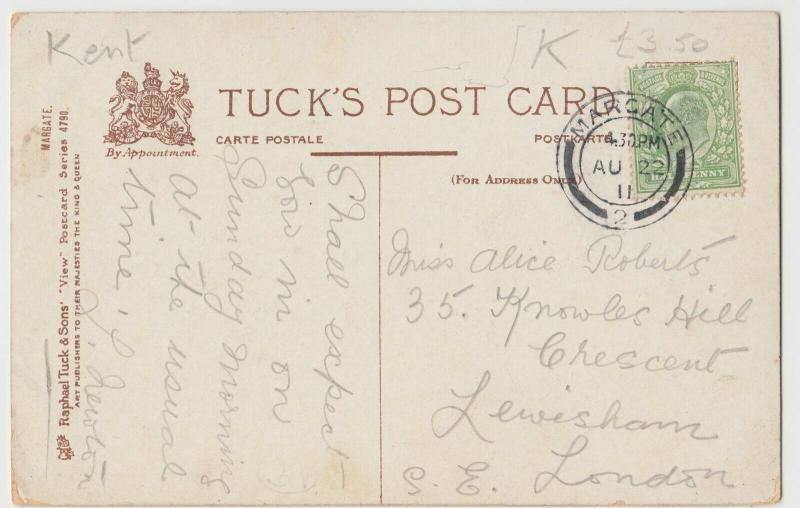 Kent
K £3.50
TUCK'S POST CARD
CARTE POSTALE
POSTKARTE
By Appointment.
(For Address Only)
MARGATE
4.30PM
AU 22
11
2
MARGATE.
Raphael Tuck & Sons' "View" Postcard Series 4790.
ART PUBLISHERS TO THEIR MAJESTIES THE KING & QUEEN
Shall expect
in on
Sunday Morning
at the usual
time.
Newton
Miss Alice Roberts
35. Knowles Hill
Crescent
Lewisham
S. E. London